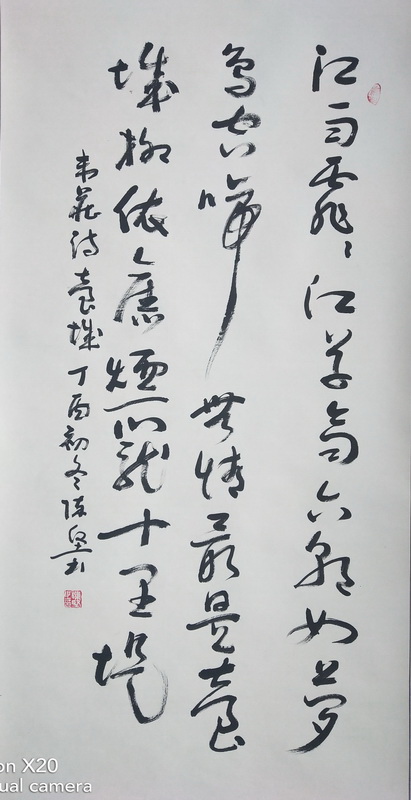 江雨霏〻江草齊六朝如夢
鳥空啼無情最是臺
城柳依舊煙籠十里堤
韋莊詩臺城丁酉初冬陳堅书
on X20
ual camera